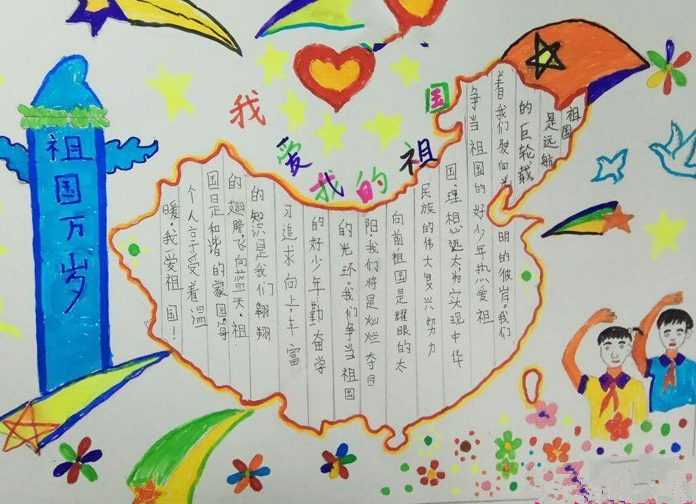 我爱我的祖国
祖国万岁
祖国
是远航
的巨轮载
着我们驶向光
明的彼岸。我们
争当祖国的好少年热爱祖
国,理想远大为实现中华
民族的伟大复兴努力
向前祖国是耀眼的太
阳,我们将是灿烂夺目
的光环。我们争当祖国
的好少年勤奋学
习追求向上,丰富
的知识是我们翱翔
的翅膀,飞向蓝天。祖
国是和谐的家园,每
个人享受着温
暖。我爱祖国!